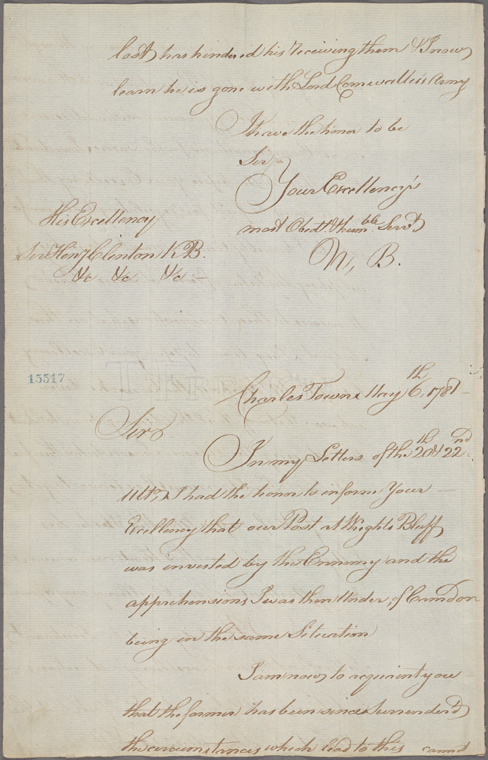 lost, has hendered his receiving them & I now
learn he is gone with Lord Cornwallis's Army
I have the honor to be
Sir
Your Excellency's
most Obedt. & hum.ble Servt.
N, B.
His Excellency
Sir Heny. Clinton K B.
&c &c &c
15517
Charles Town May 6.th 1781
Sir
In my Letters of the 20th & 22nd
Ulto, I had the honor to inform Your
Excellency that our Post at Wrights Bluff
was invested by the Enemy and the
apprehensions I was then Under, of Camden
being in the same Situation
I am now to acquaint you
that the former has been since Surrender'd
the circumstances which lead to this cannot